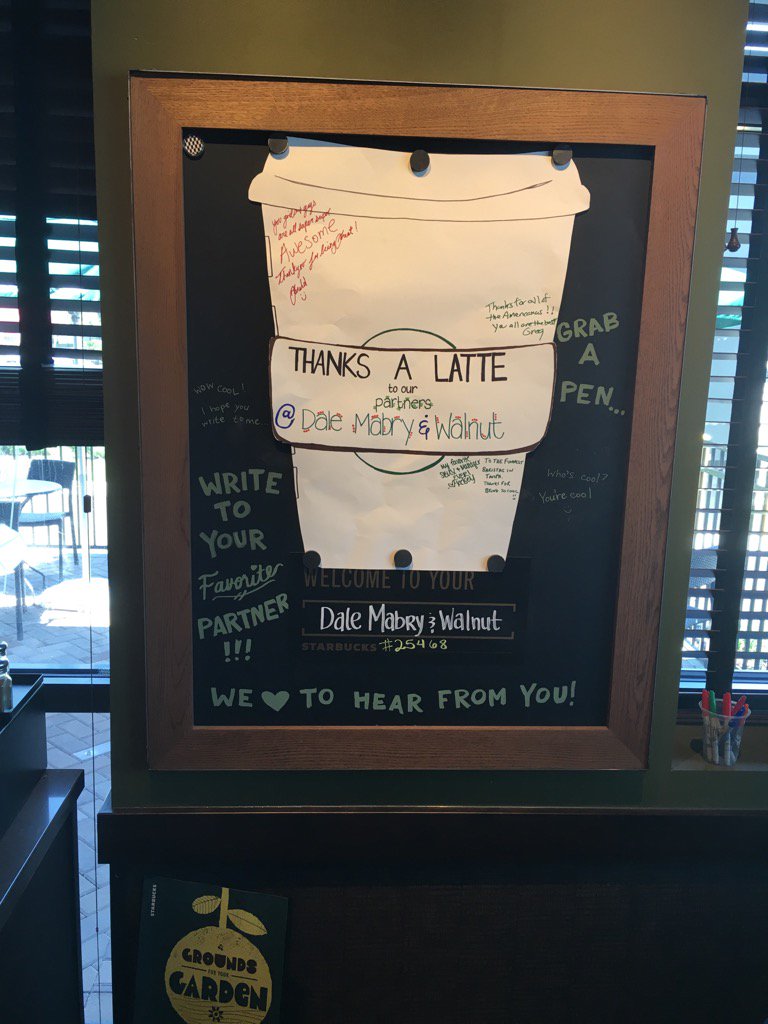 you guys
are all super super
Awesome
Thank you for being Great!
Thanks for all of
the Awesomeness!!
Ya all are the best
Greg
GRAB
A
PEN...
THANKS A LATTE
to our
partners
@ Dale Mabry & Walnut
WOW COOL!
I hope you
write to me...
TO THE FUNNIEST
BARISTAS IN
TAMPA
THANKS FOR
BEING SO COOL
Who's cool?
You're cool
WRITE
TO
YOUR
Favorite
PARTNER
!!!
WELCOME TO YOUR
Dale Mabry & Walnut
STARBUCKS #25468
WE TO HEAR FROM YOU!
STARBUCKS
GROUNDS
FOR YOUR
GARDEN